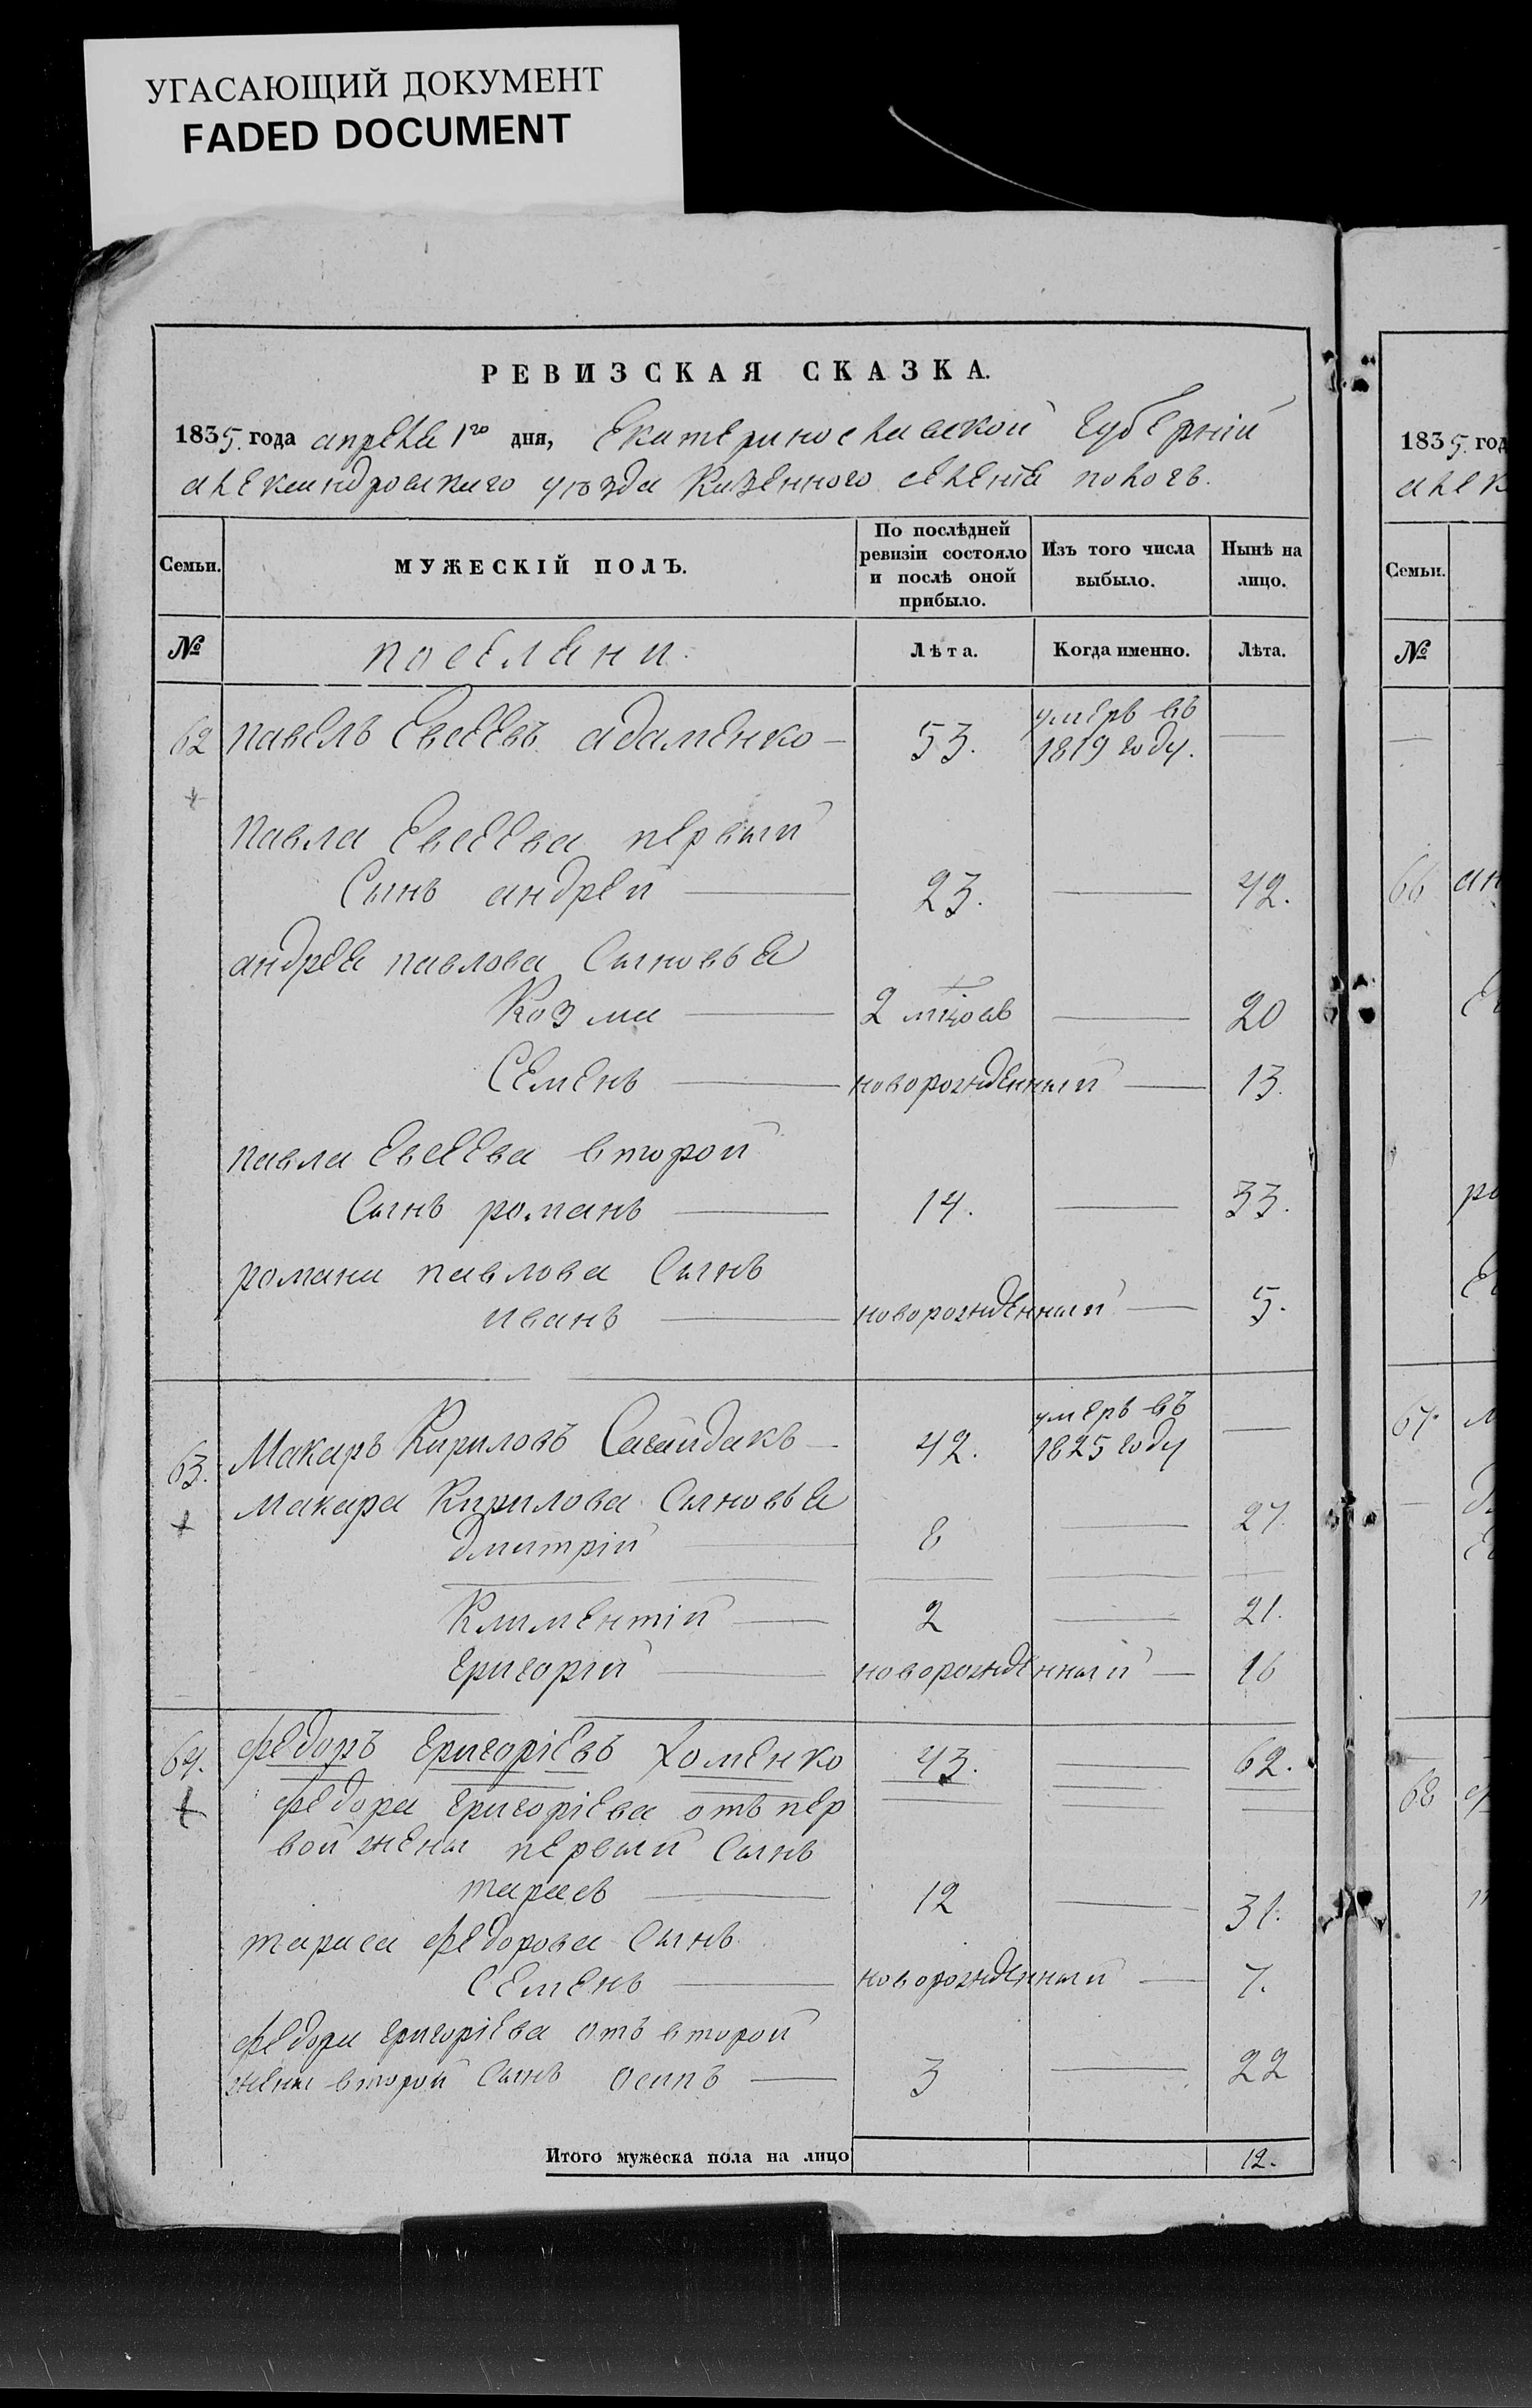 УГАСАЮЩИЙ ДОКУМЕНТ
FADED DOCUMENT
РЕВИЗСКАЯ СКАЗКА.
1835. года апреля 1го дня, Екатеринославской губерніи
александровскаго уѣзда Казенного селенія пологъ.
Семьи. МУЖЕСКІЙ ПОЛЪ. По послѣдней ревизіи состояло и послѣ оной прибыло. Изъ того числа выбыло. Нынѣ на лицо.
№ поселяни. Лѣта. Когда именно. Лѣта.
62 павелъ Евсеевъ адаменко — 53. умеръ въ 1819 году. —
павла Евсеева первый
Сынъ андрей — 23. — 42.
андрея павлова Сыновья
Козма — 2 мцовъ — 20
Семенъ — новорожденный — 13.
павла Евсеева второй
Сынъ романъ — 14. — 33.
романа павлова Сынъ
иванъ — новорожденный — 5.
63. Макаръ Кириловъ Сагайдакъ — 42. умеръ въ 1825 году —
макара Кирилова Сыновья
дмитрій — 8 — 27.
Климентій — 2 — 21.
григорій — новорожденный — 16
64. федоръ григоріевъ хоменко 43. — 62.
федора григоріева отъ пер
вой жены первый Сынъ
тарасъ — 12 — 31.
тараса федорова Сынъ
Семенъ — новорожденный — 7.
федора григоріева отъ второй
жены второй Сынъ осипъ — 3 — 22
Итого мужеска пола на лицо 12.
1835. год
алек
Семьи.
№
66 ан
ро
67. м
68